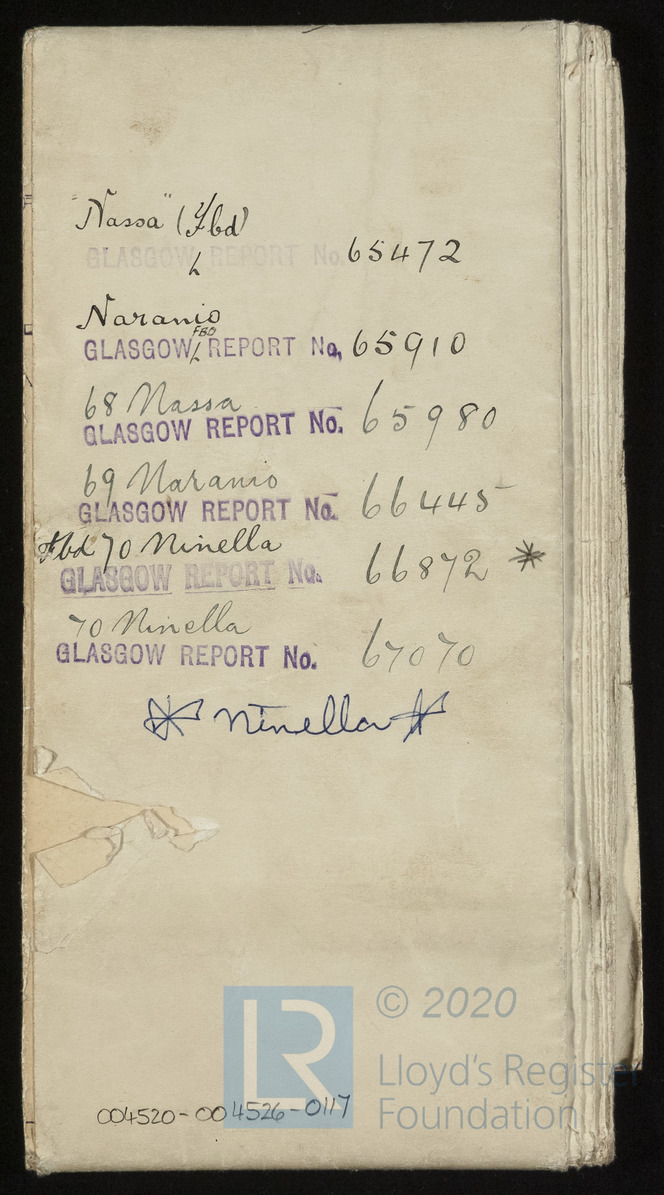 "Nassa" (Fbd)
GLASGOW REPORT No. 65472
L
Naranio
FBD
GLASGOW L REPORT No. 65910
68 Nassa
GLASGOW REPORT No. 65980
69 Naranio
GLASGOW REPORT No. 66445
Fbd 70 Ninella
GLASGOW REPORT No. 66872 *
70 Ninella
GLASGOW REPORT No. 67070
* Ninella *
LR
© 2020
Lloyd's Register
Foundation
004520-004526-0117